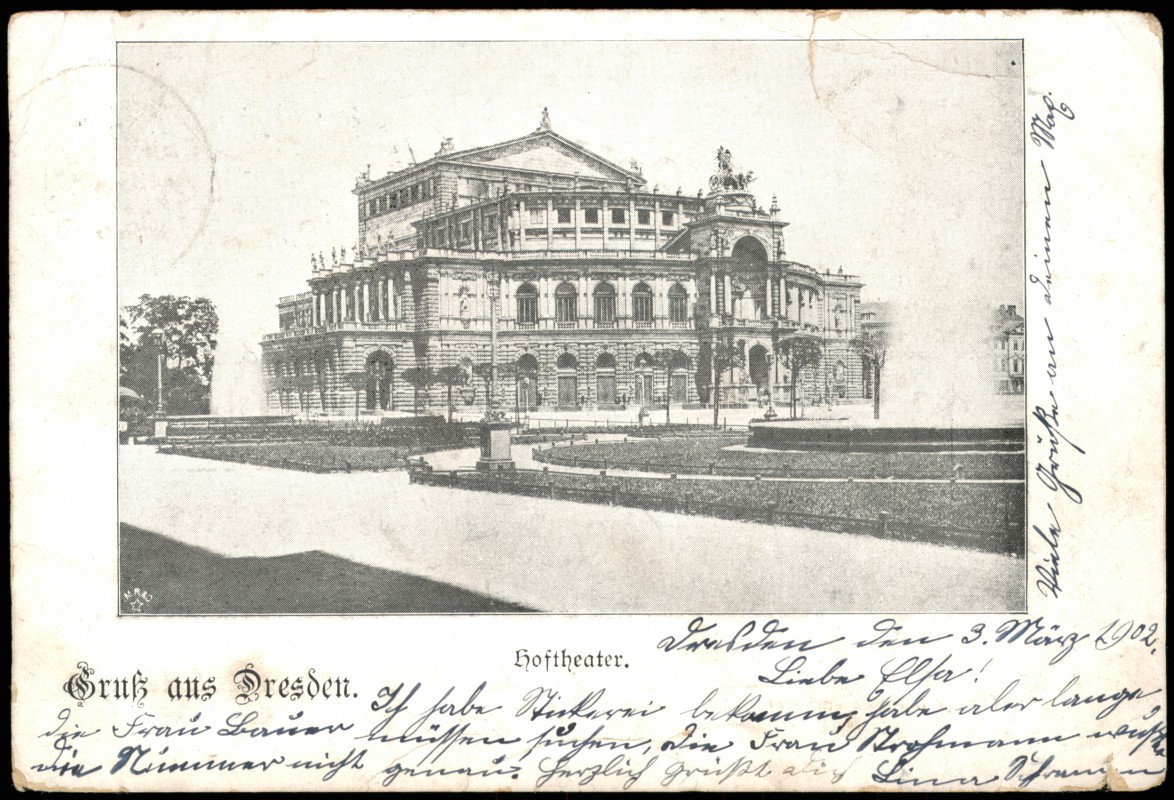 Gruß aus Dresden.
Hoftheater.
Dresden den 3. März 1902.
Liebe Elsa!
Ich habe Stickerei bekomm, habe aber lange
die Frau Bauer müssen suchen, die Frau Strohmann wußte
die Nummer nicht genau. Herzlich grüßt dich Lina
Viele Grüße an deinen Max.